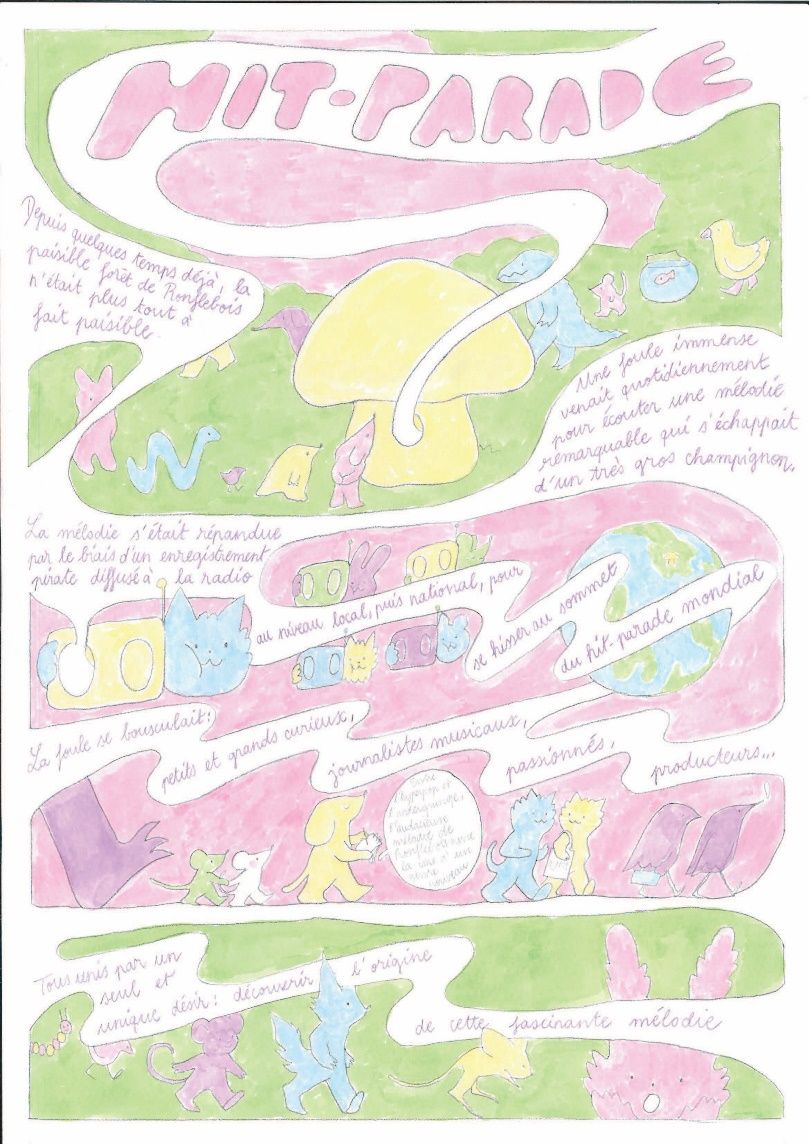 HIT-PARADE
Depuis quelques temps déjà, la
paisible forêt de Ronflebois
n'était plus tout à
fait paisible.
Une foule immense
venait quotidiennement
pour écouter une mélodie
remarquable qui s'échappait
d'un très gros champignon.
La mélodie s'était répandue
par le biais d'un enregistrement
pirate diffusé à la radio
au niveau local, puis national, pour
se hisser au sommet
du hit-parade mondial
La foule se bousculait:
petits et grands curieux,
journalistes musicaux,
passionnés,
producteurs...
l'audacieuse
mélodie de
Ronflebois ouvre
la voie à un
genre
nouveau
Tous unis par un
seul et
unique désir: découvrir l'origine
de cette fascinante mélodie